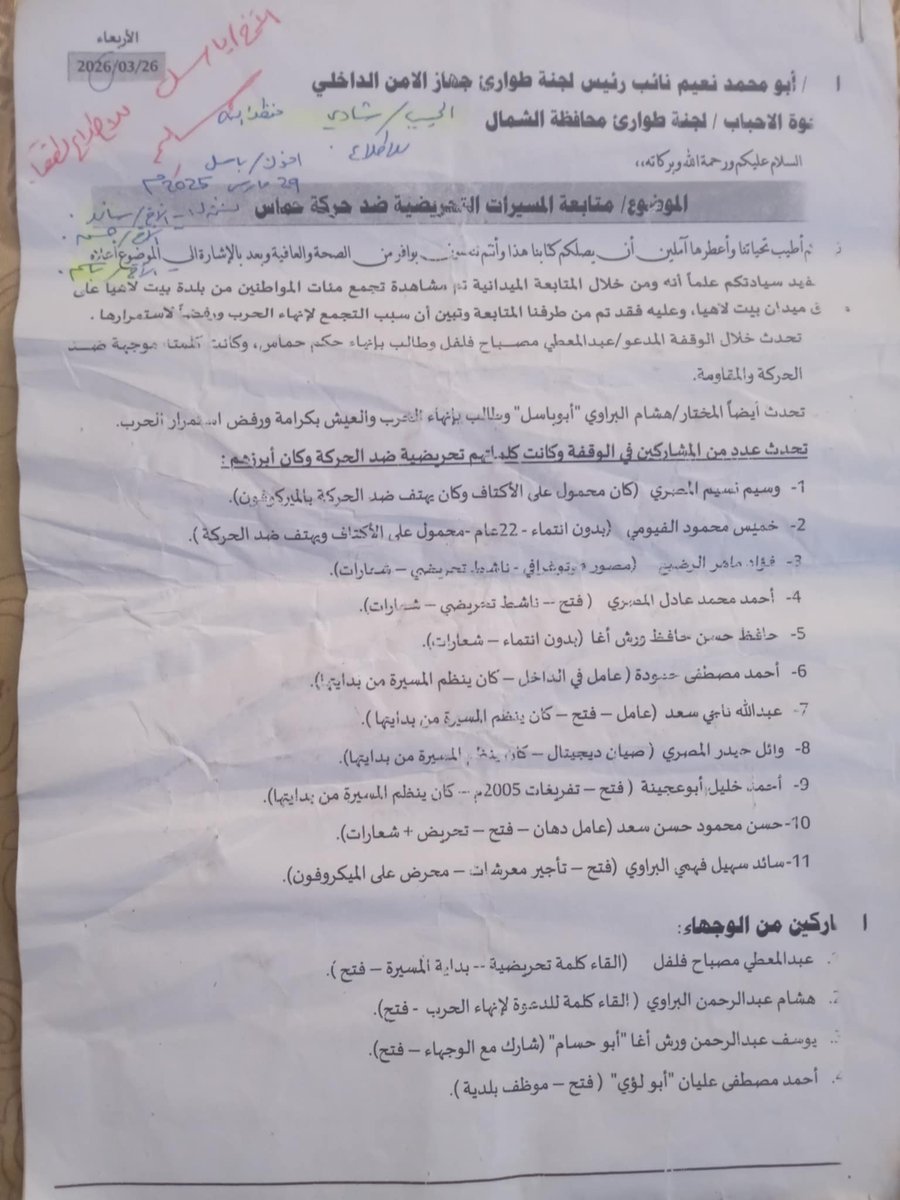 الأربعاء
2026/03/26
/ أبو محمد نعيم نائب رئيس لجنة طوارئ جهاز الامن الداخلي
خوة الاحباب / لجنة طوارئ محافظة الشمال
السلام عليكم ورحمة الله وبركاته،،
الحبيب/ شادي
للاطلاع.
حفظه الله
اخوك/ باسل
29 مارس 2025م
الموضوع/ متابعة المسيرات التحريضية ضد حركة حماس
م أطيب تحياتنا وأعطرها آملين أن يصلكم كتابنا هذا وأنتم بوافر من الصحة والعافية وبعد بالإشارة إلى الموضوع أعلاه
فيد سيادتكم علماً أنه ومن خلال المتابعة الميدانية تم مشاهدة تجمع مئات المواطنين من بلدة بيت لاهيا على
ق ميدان بيت لاهيا، وعليه فقد تم من طرفنا المتابعة وتبين أن سبب التجمع لإنهاء الحرب ورفضاً لاستمرارها .
تحدث خلال الوقفة المدعو/عبدالمعطي مصباح فلفل وطالب بإنهاء حكم حماس، وكانت موجهة ضد
الحركة والمقاومة.
تحدث أيضاً المختار/هشام البراوي "أبوباسل" وطالب بإنهاء الحرب والعيش بكرامة ورفض استمرار الحرب.
تحدث عدد من المشاركين في الوقفة وكانت كلماتهم تحريضية ضد الحركة وكان أبرزهم :
1- وسيم نسيم المصري (كان محمول على الأكتاف وكان يهتف ضد الحركة بالميكروفون).
2- خميس محمود الفيومي (بدون انتماء - 22عام -محمول على الأكتاف ويهتف ضد الحركة ).
3- فؤاد ماهر الرضيع (مصور فوتوغرافي - ناشط تحريضي – شعارات).
4- أحمد محمد عادل المصري ( فتح – ناشط تحريضي – شعارات).
5- حافظ حسن حافظ ورش أغا (بدون انتماء – شعارات).
6- أحمد مصطفى حمودة ( عامل في الداخل – كان ينظم المسيرة من بدايتها).
7- عبدالله ناجي سعد (عامل – فتح – كان ينظم المسيرة من بدايتها ).
8- وائل حيدر المصري ( صيان ديجيتال – كان ينظم المسيرة من بدايتها).
9- أحمد خليل أبوعجينة ( فتح – تفريغات 2005م – كان ينظم المسيرة من بدايتها).
10-حسن محمود حسن سعد (عامل دهان – فتح – تحريض + شعارات).
11-سائد سهيل فهمي البراوي (فتح – تأجير معرشات – محرض على الميكروفون).
اركين من الوجهاء:
عبدالمعطي مصباح فلفل (القاء كلمة تحريضية -- بداية المسيرة – فتح ).
هشام عبدالرحمن البراوي ( القاء كلمة للدعوة لإنهاء الحرب - فتح).
يوسف عبدالرحمن ورش أغا "أبو حسام" (شارك مع الوجهاء – فتح).
أحمد مصطفى عليان "أبو لؤي" ( فتح – موظف بلدية ).